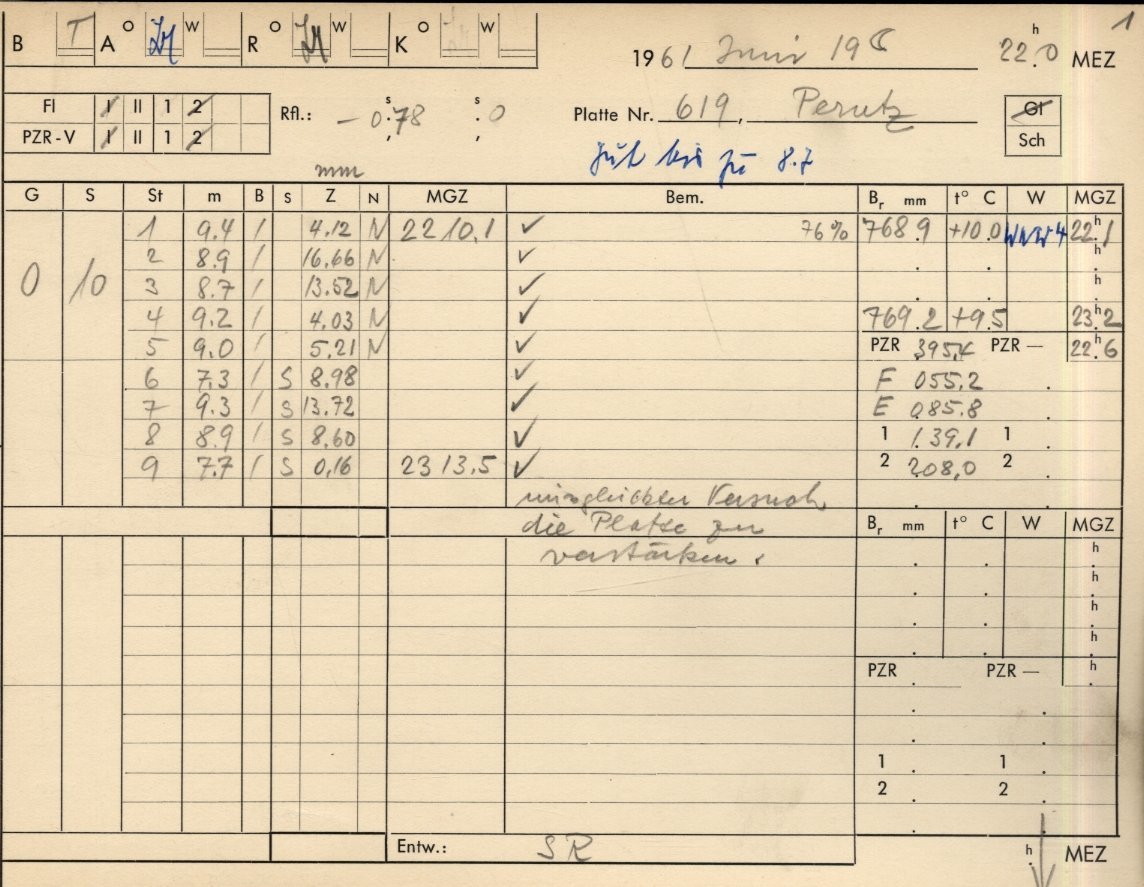 B T A O W R O W K O W 1961 Juni 198 22.0 h MEZ 1
Fl I II 1 2
PZR-V I II 1 2
Rfl.: – 0.78 s : 0 s
Platte Nr. 619, Perutz
Gl
Sch
gut bis zu 8.7
mm
G S St m B S Z N MGZ Bem. Br mm t° C W MGZ
0 10 1 9.4 / 4.12 N 22 10.1 ✓ 76% 768.9 +10.0 WNW 4 22.1 h
2 8.9 / 16.66 N ✓ . . h
3 8.7 / 13.52 N ✓ h
4 9.2 / 4.03 N ✓ 769.2 +9.5 23.2 h
5 9.0 / 5.21 N ✓ PZR 395.4 PZR — 22.6 h
6 7.3 / S 8.98 ✓ F 055.2
7 9.3 / S 13.72 ✓ E 085.8
8 8.9 / S 8.60 ✓ 1 139.1 1
9 7.7 / S 0.16 23 13.5 ✓ 2 208.0 2
missglückter Versuch
die Platte zu
verstärken.
Br mm t° C W MGZ
h
h
h
h
PZR PZR — h
1 1
2 2
Entw.: SR h MEZ